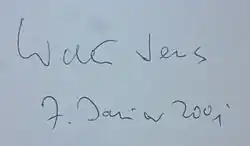 Walter Jens
7. Januar 2001